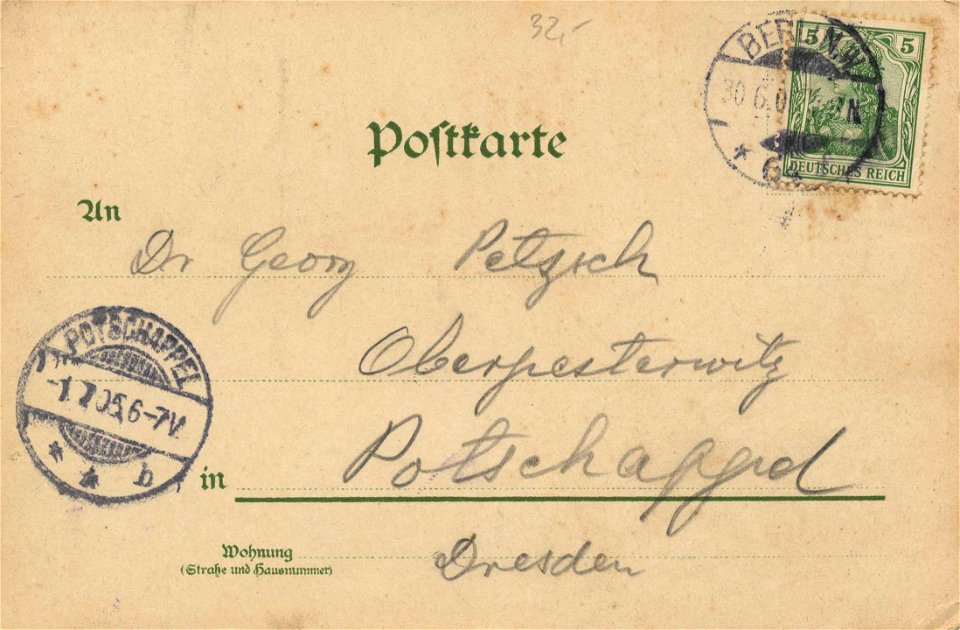 32,-
BERLIN.W.
30.6.0
N
* 64
5 5
DEUTSCHES REICH
Postkarte
An
Dr Georg Petzsch
Oberpesterwitz
POTSCHAPPEL
-1.7.05.6-7V.
* * b
in Potschappel
Wohnung
(Straße und Hausnummer)
Dresden